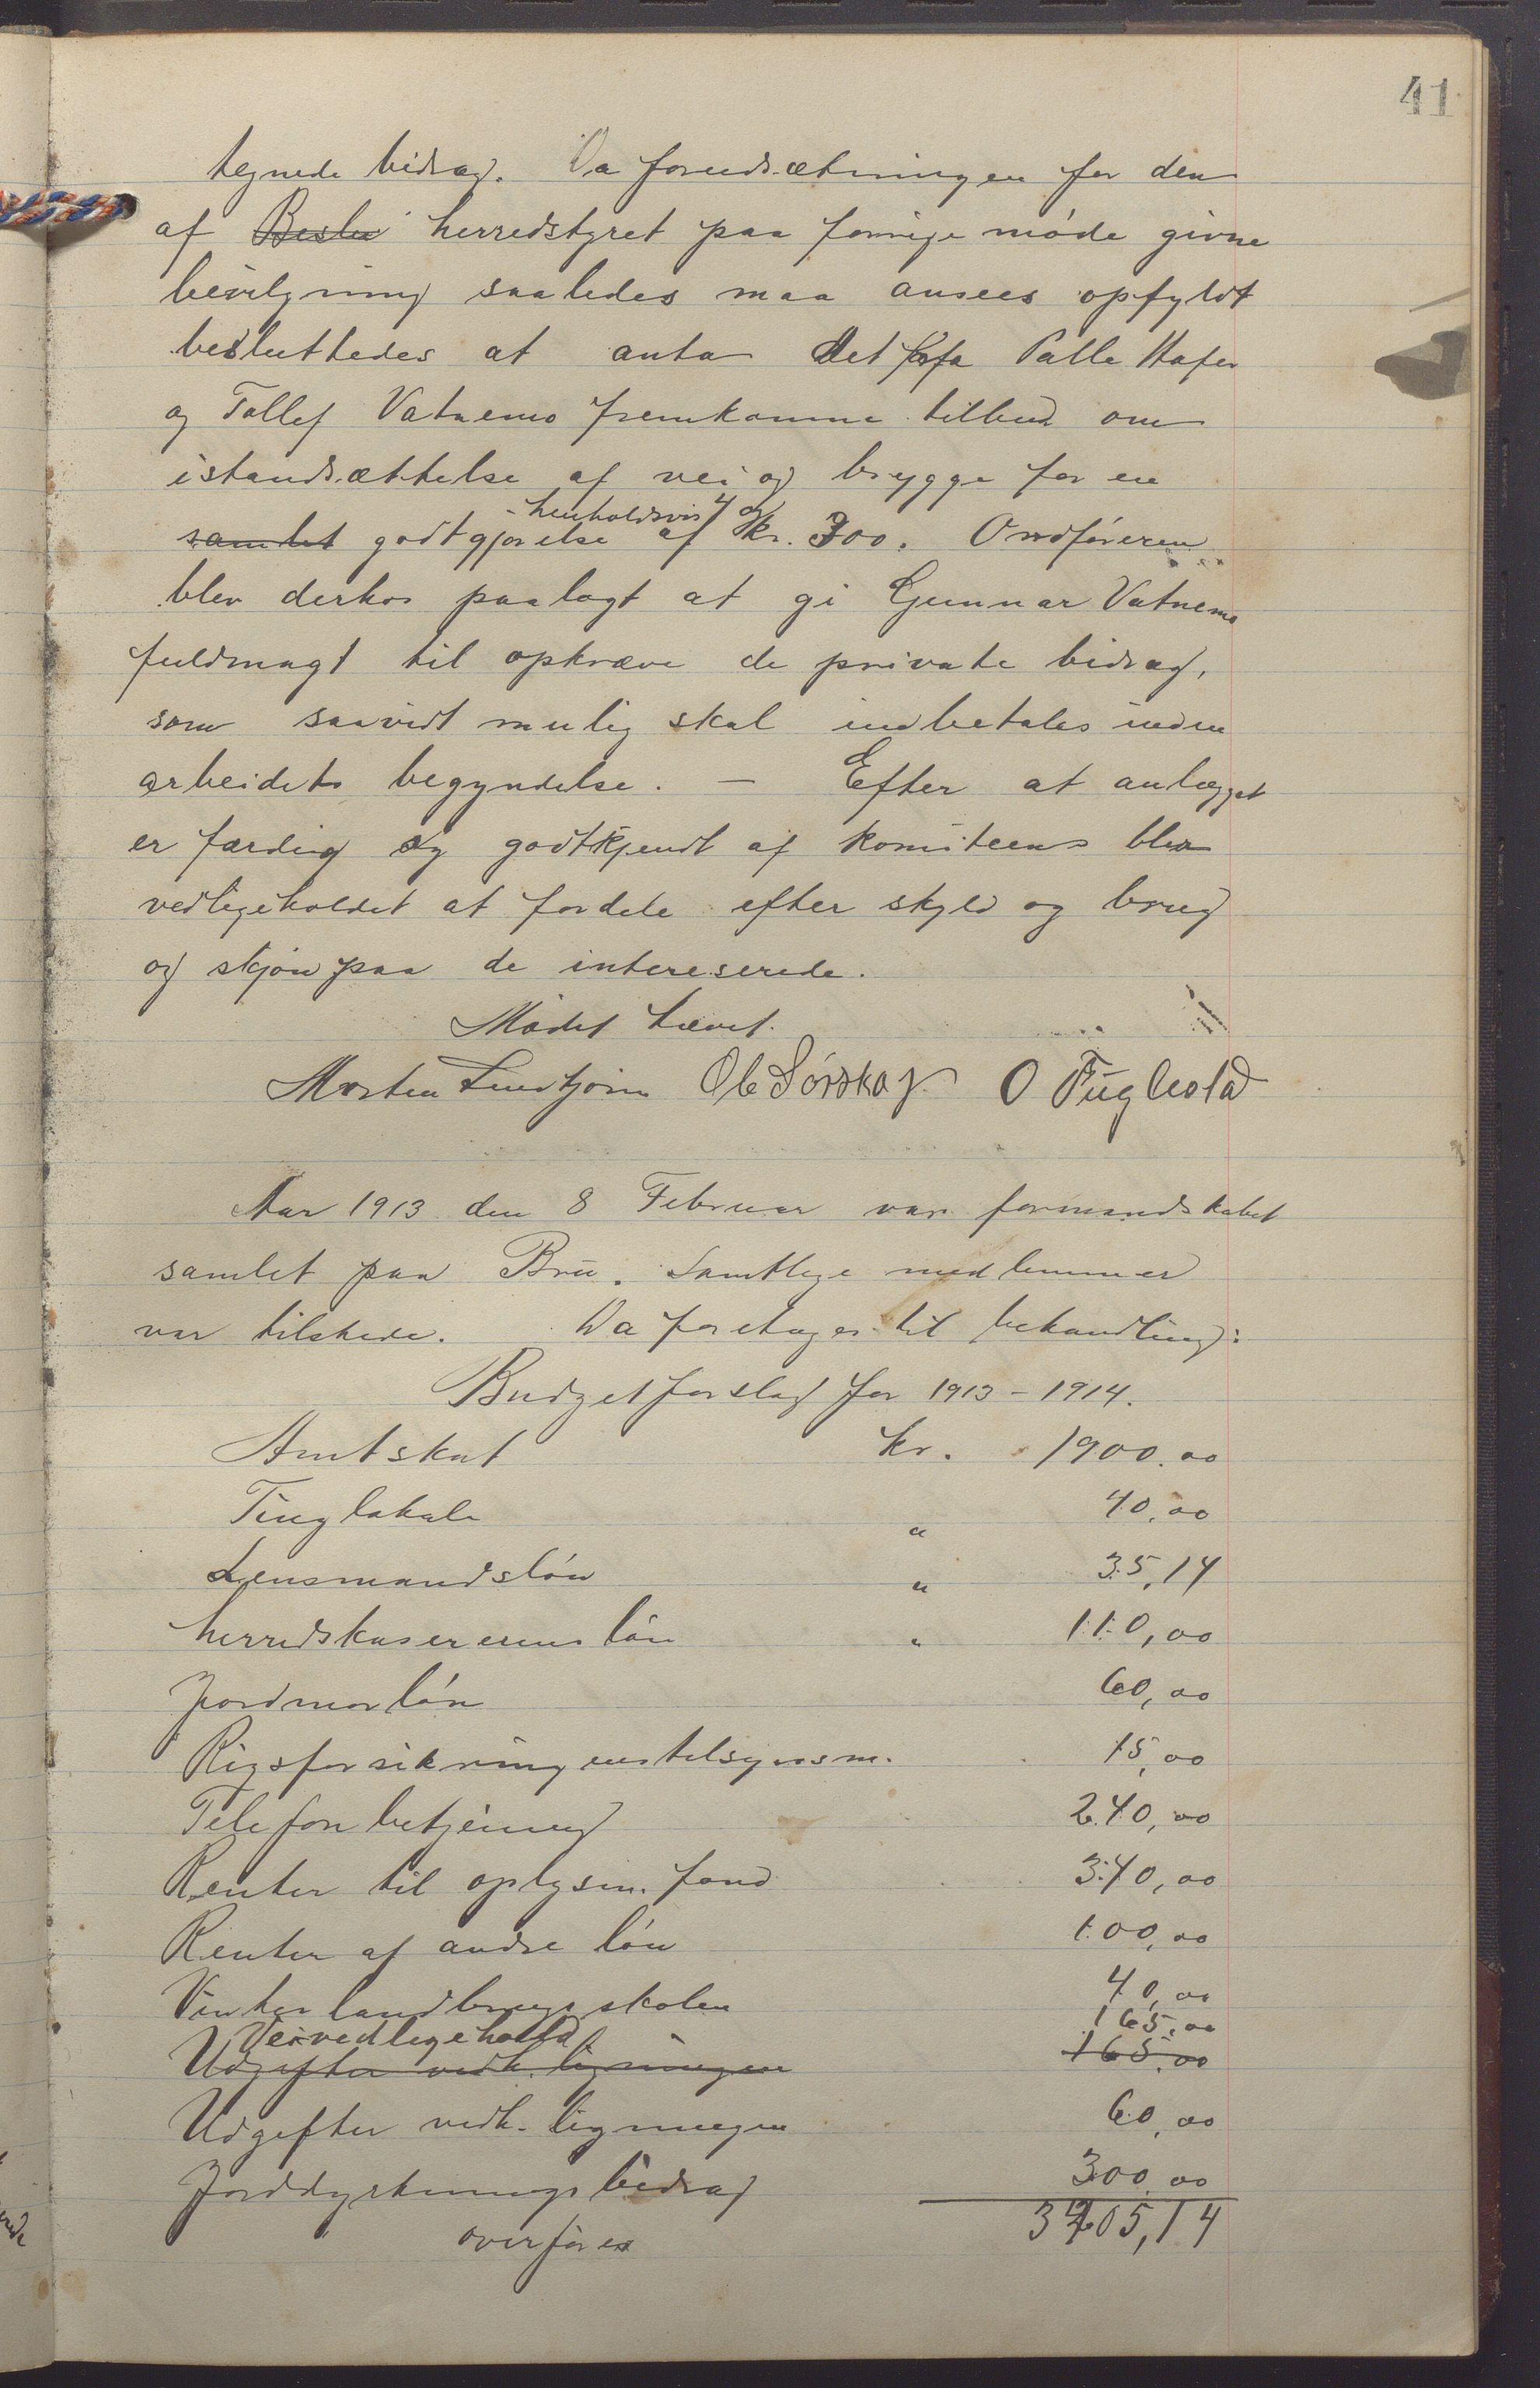 41
tegnede bidrag. Da forudsætningen for den
af Beslu herredstyret paa forrige møde givne
bevilgning saaledes maa ansees opfyldt
besluttedes at anta det fra Palle Hafer
og Tollef Vatnemo fremkomne tilbud om
istandsættelse af vei og brygge for en
henholdsvis 4 og
samlet godtgjørelse af kr. 300. Ordføreren
blev derhos paalagt at gi Gunnar Vatnemo
fuldmagt til opkræve de private bidrag,
som saavidt mulig skal indbetales inden
arbeidets begyndelse. — Efter at anlægget
er færdig og godtkjendt af komiteen blir
vedligeholdet at fordele efter skyld og brug
og skjøn paa de intereserede.
Mødet hævet.
Morten Lindtjørn Ole Sørskog O Fuglestad
Aar 1913 den 8 Februar var formandskabet
samlet paa Bru. Samtlige medlemmer
var tilstede. Da foretages til behandling:
Budgetforslag for 1913 - 1914.
Amtskat kr. 1900.00
Tinglokale " 40,00
Lensmandsløn " 35,14
herredskasererens løn " 110,00
Jordmorløn 60,00
Rigsforsikringens tilsynsm. 15,00
Telefonbetjening 240,00
Renter til oplysn. fond 340,00
Renter af andre lån 100,00
Vinterlandbrugsskolen 40,00
Veivedligehold 165,00
Udgifter vedk. ligningen 165,00
Udgifter vedk. ligningen 60,00
Jorddyrkningsbidrag 300,00
overføres 3405,14